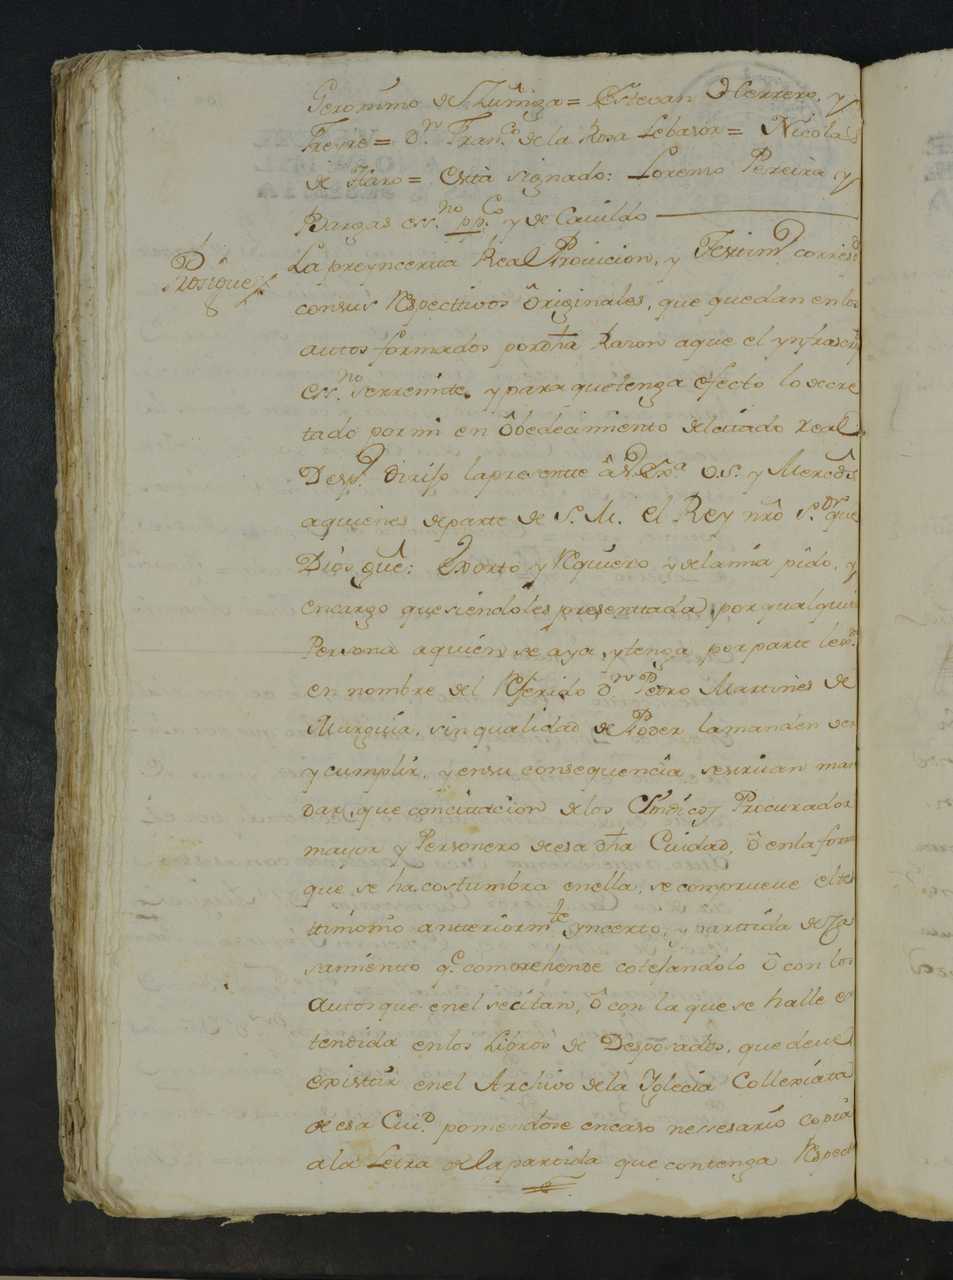 Geronimo de Zuñiga = Estevan Herrero, y
Freyre = Dn Franco de la Rosa Lebasor = Nicolas
de Haro = esta signado: Lorenso Pereira y
Bargas essno ppco y de Cavildo
Prosigue
La preyncerta Real Provicion, y Testimo corresde
consus Respecttivos Originales, que quedan en los
autos formados pordha Razon aque el ynfrascripto
essno serremite. y para quetenga efecto lo decre
tado por mi en Obedecimiento delcitado Real
Despo dirijo lapresente â V. Exa V.S. y Mercedes
aquienes departe de S. M. el Rey nrô Sor que
Diós gue: Exorto y Requiero y delamia pido, y
encargo que siendoles presentada, por qualquie
Persona aquien se aya, y tenga por parte lexma
en nombre del Referido Dn Pedro Martines de
Murguia, sin qualidad de Poder lamanden ver
y cumplir, y ensu consequencia, sesirvan man
dar, que concitacion delos Sindicos Procurador
mayor y Personero deesa dha Ciudad, ô enla forma
que se ha costumbra enella, se comprueve eltes
timonio anteriormte yncerto, y partida de Ca
samiento qe comprehende cotejandolo ô con los
Autos que enel secitan, ô con la que se halle es
tendida enlos Libros de Desposados, que deve
existir enel Archivo dela Yglecia Collexiata
de esa Ciud poniendose encaso nessesario copia
ala Letra dela partida que contenga Respect